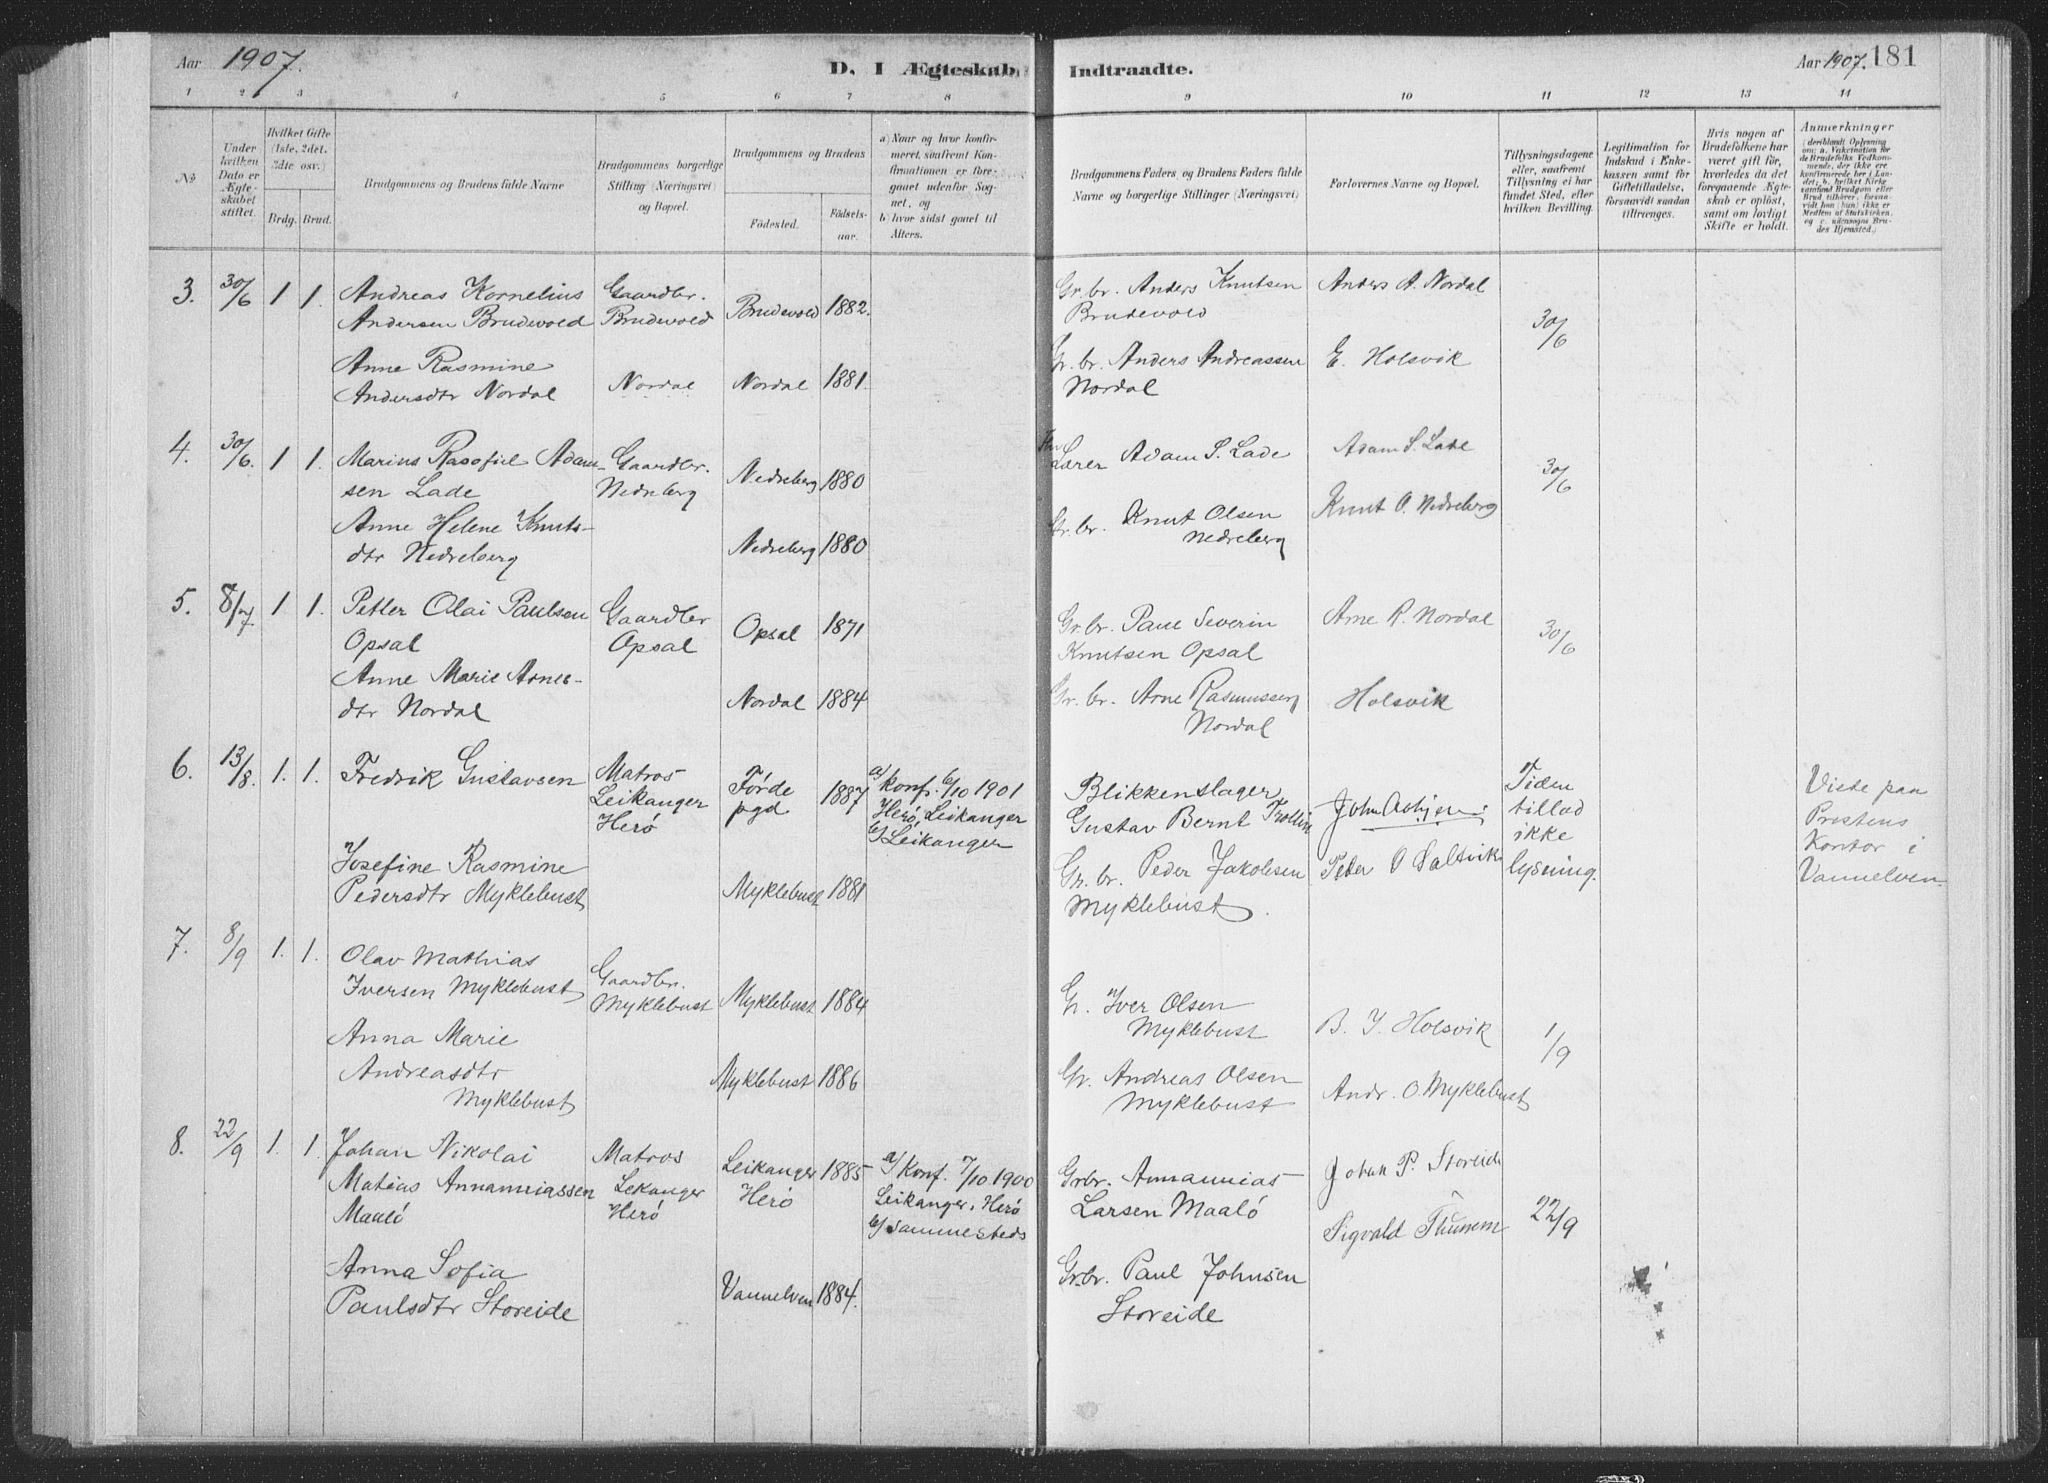 Aar 1907.
D. I Ægteskab
Indtraadte.
Aar 1907. 181
1 2 3 4 5 6 7 8 9 10 11 12 13 14
No
Under hvilken Dato er Ægteskabet stiftet.
Hvilket Gifte (1ste, 2det, 3die osv.)
Brdg. Brud.
Brudgommens og Brudens fulde Navne
Brudgommens borgerlige Stilling (Næringsvei) og Bopæl.
Brudgommens og Brudens
Fødested.
Fødselsaar.
a) Naar og hvor konfirmeret, saafremt Konfirmationen er foregaaet udenfor Sognet, og
b) hvor sidst gaaet til Alters.
Brudgommens Faders, og Brudens Faders fulde Navne og borgerlige Stillinger (Næringsvei)
Forlovernes Navne og Bopæl.
Tillysningsdagene eller, saafremt Tillysning ei har fundet Sted, efter hvilken Bevilling.
Legitimation for Indskud i Enkekassen samt for Giftetilladelse, forsaavidt saadan tiltrænges.
Hvis nogen af Brudefolkene har været gift før, hvorledes da det foregaaende Ægteskab er opløst, samt om lovligt Skifte er holdt.
Anmærkninger
(deriblandt Oplysning om: a. Vakcination for de Brudefolks Vedkommende, der ikke ere konfirmerede her i Landet; b. hvilket Kirkesamfund Brudgom eller Brud tilhører, forsaavidt han (hun) ikke er Medlem af Statskirken, og c. udensogns Brudes Hjemsted.)
3. 30/6 1 1.
Andreas Kornelius
Andersen Brudevold
Gaardbr.
Brudevold
Brudevold 1882.
Gr. br. Anders Knutsen
Brudevold
Anders A. Nordal
30/6
Anne Rasmine
Andersdtr Nordal
Nordal
Nordal 1881.
Gr. br. Anders Andreassen
Nordal
E. Holsvik
4. 30/6. 1 1.
Marius Rasofiel Adam-
sen Lade
Gaardbr.
Nedreberg
Nedreberg 1880
Lærer Adam S. Lade
Adam S. Lade
30/6
Anne Helene Knuts-
dtr Nedreberg
Nedreberg 1880
Gr. br. Knut Olsen
Nedreberg
Knut O. Nedreberg
5. 8/7 1 1.
Petter Olai Paulsen
Opsal
Gaardbr
Opsal
Opsal 1871
Gr. br. Paul Severin
Knutsen Opsal
Arne R. Nordal
30/6
Anne Marie Arnes-
dtr Nordal
Nordal 1884
Gr. br. Arne Rasmusserg
Nordal
Holsvik
6. 13/8. 1. 1.
Fredrik Gustavsen
Matros
Leikanger
Herø
Førde
pgd
1887
a/ konf. 6/10 1901
Herø, Leikanger
b/ Leikanger
Blikkenslager
Gustav Bernt
John
Tiden
tillod
ikke
lysning.
Viete paa
Prestens
Kontor i
Vannelven.
Josefine Rasmine
Pedersdtr Myklebust
Myklebust 1881
Gr. br. Peder Jakobsen
Myklebust.
Peter O Saltvik
7. 8/9 1. 1.
Olav Mathias
Iversen Myklebust
Gaardbr.
Myklebust
Myklebust 1884
G. Iver Olsen
Myklebust
B. J. Holsvik
1/9
Anna Marie
Andreasdtr
Myklebust
Myklebust 1886
Gr. Andreas Olsen
Myklebust
Andr. O Myklebust
8. 22/9 1. 1.
Johan Nikolai
Matias Annaniassen
Maalö
Matros
Lekanger
Herø
Leikanger
Herø
1885
a/ Konf. 7/10 1900
Leikanger, Herø
b/ sammesteds
Grbr. Annanias
Larsen Maalö
Johan P. Storeide
Sigvald Thunem
22/9
Anna Sofia
Paulsdtr Storeide
Vannelven 1884.
Grbr. Paul Johnsen
Storeide